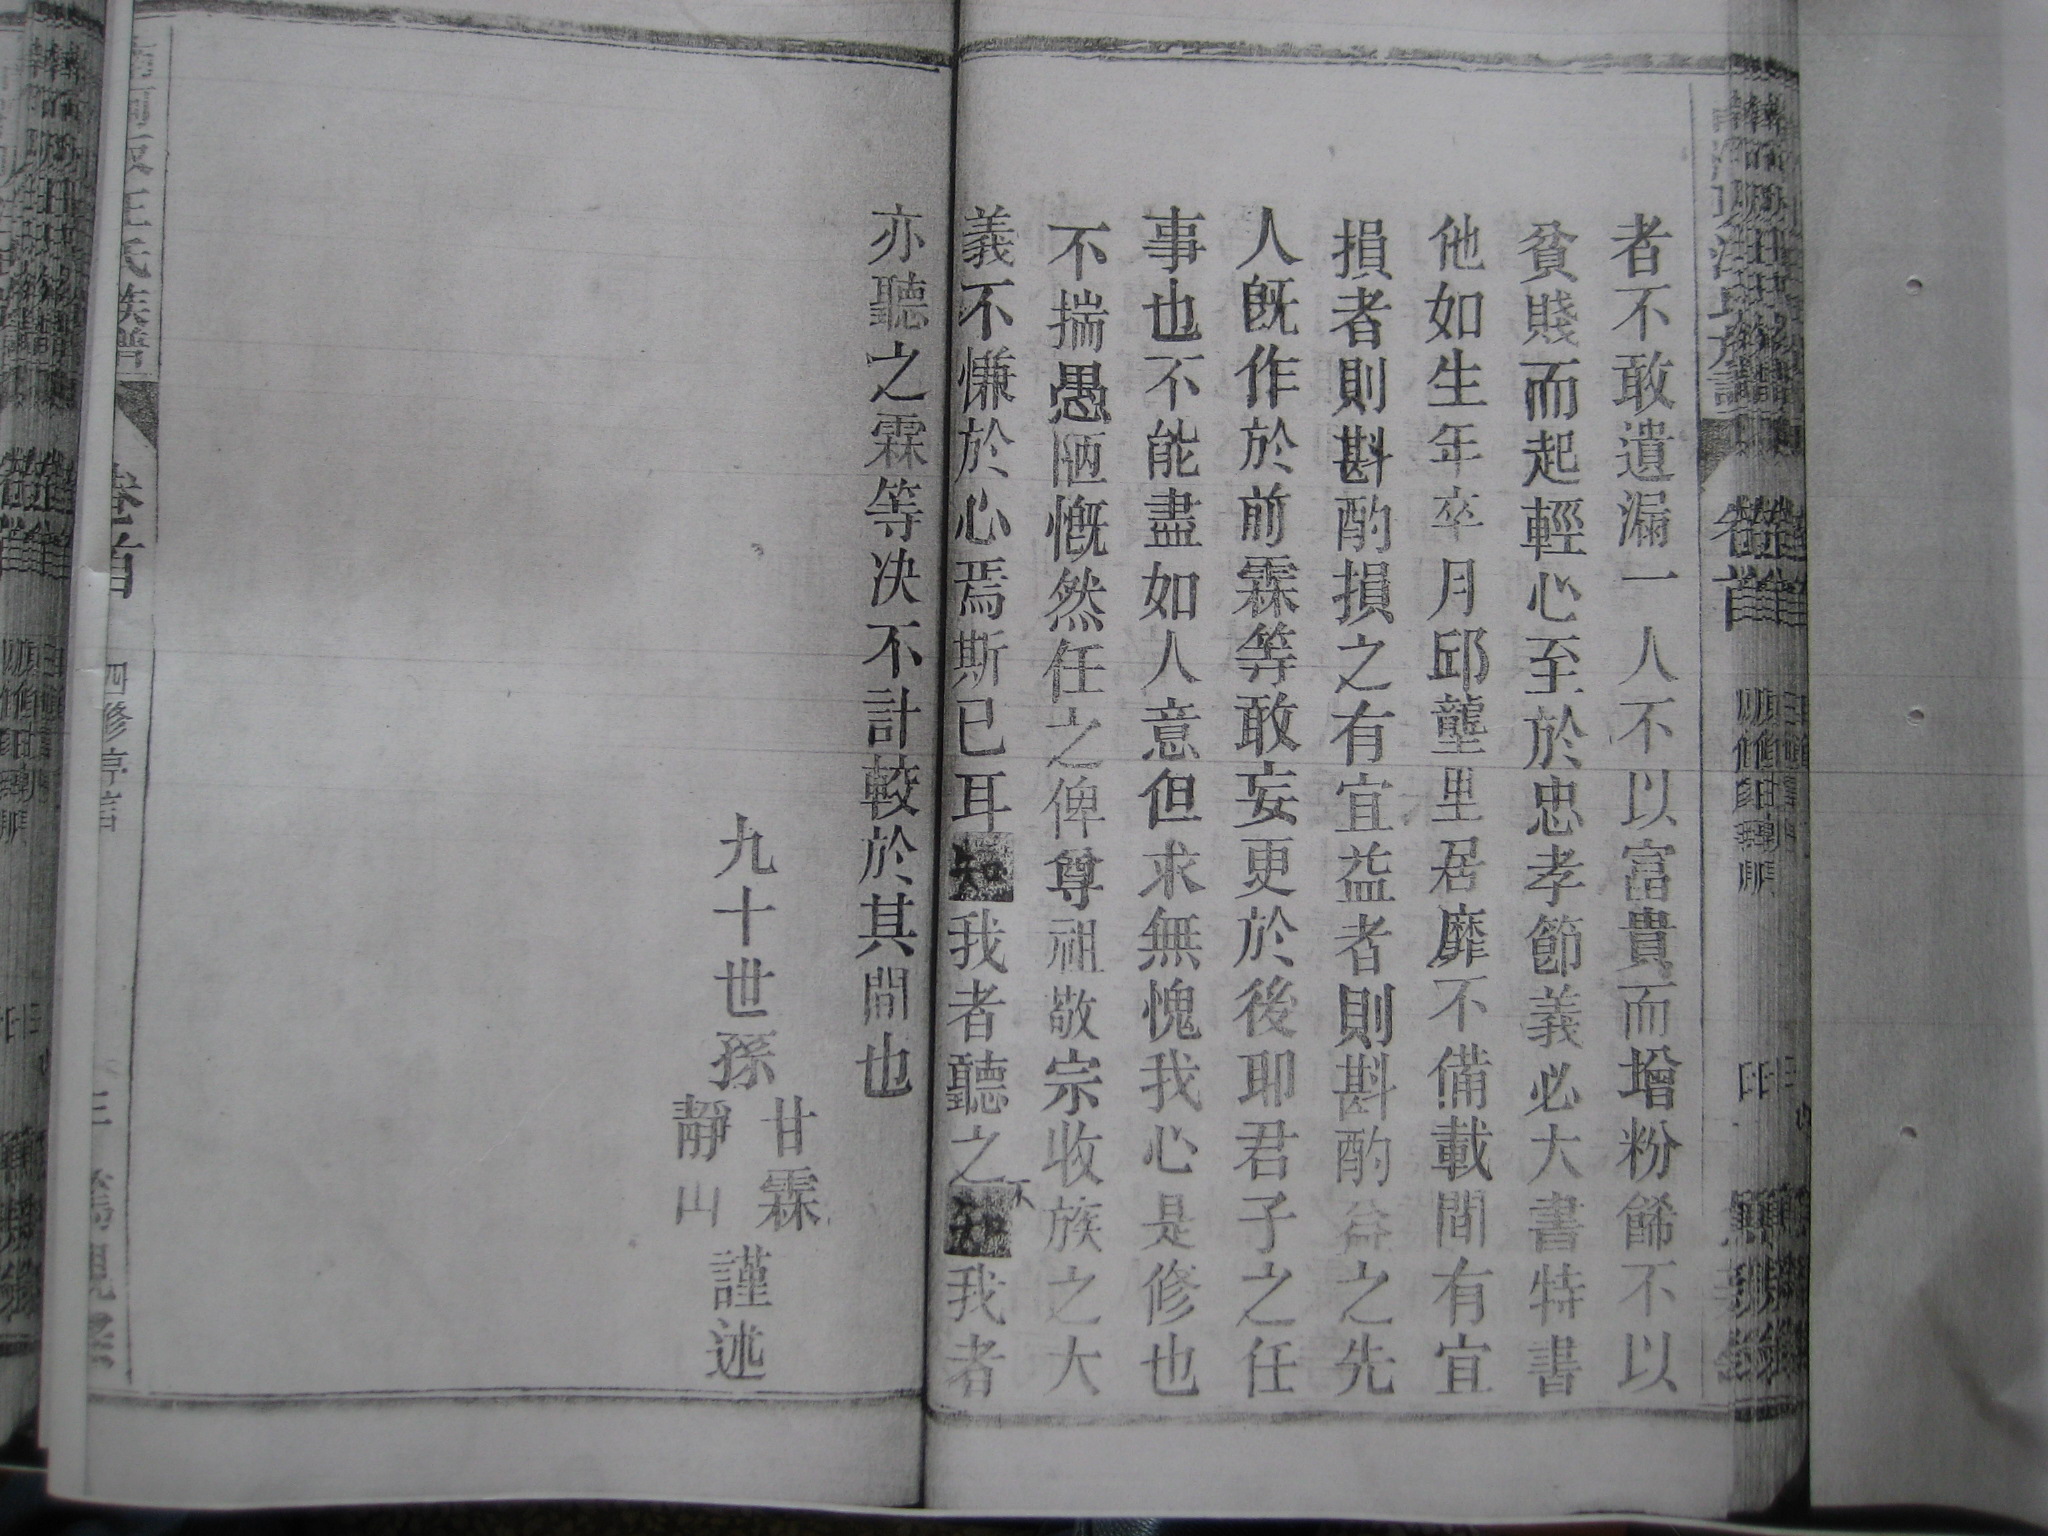 者不敢遺漏一人不以富貴而增粉餙不以
貧賤而起輕心至於忠孝節義必大書特書
他如生年卒月邱壟里居靡不備載間有宜
損者則斟酌損之有宜益者則斟酌益之先
人旣作於前霖等敢妄更於後耶君子之任
事也不能盡如人意但求無愧我心是修也
不揣愚陋慨然任之俾尊祖敬宗收族之大
義不慊於心焉斯已耳知我者聽之不知我者
亦聽之霖等决不計較於其間也
九十世孫
甘霖
靜山
謹述
王氏族譜
卷首
四修序言